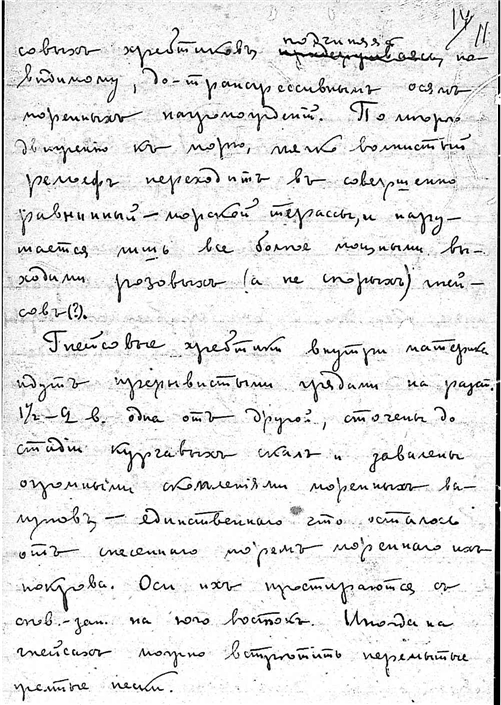 14/11
совыхъ хребтиковъ, подчиняясь по
видимому, до-трансгрессивнымъ осямъ
моренныхъ нагроможденій. По мѣрѣ
движенія къ морю, мягко волнистый
рельефъ переходитъ въ совершенно
равнинный – морской террасы, и нару-
шается лишь все болѣе мощными вы-
ходами розовыхъ (а не сѣрыхъ) гней-
совъ (?).
Гнейсовые хребтики внутри материка
идутъ прерывистыми грядами на разст.
1½–2 в. одна отъ другой, сточены до
стадіи курчавыхъ скалъ и завалены
огромными скопленіями моренныхъ ва-
луновъ – единственнаго что осталось
отъ снесеннаго моремъ мореннаго ихъ
покрова. Оси ихъ простираются съ
сѣв.-зап. на юго востокъ. Иногда на
гнейсахъ можно встрѣтить перемытые
желтые пески.